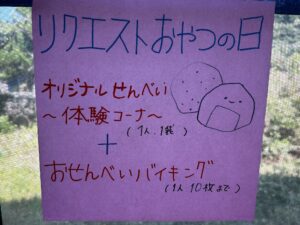 リクエストおやつの日
オリジナルせんべい
～体験コーナ～
(1人.1袋)
+
おせんべいバイキング
(1人10枚まで)